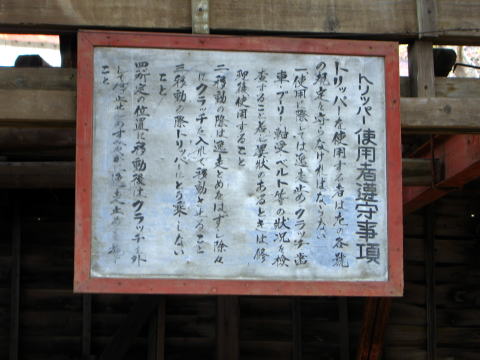 トリッパー使用者遵守事項
トリッパーを使用する者は左の各號
の規定を守らなければならない
一使用に際しては逸走止めクラッチ歯
車プーリー軸受ベルト等の状況を検
査すること若し異状のあるときは修
理後使用すること
二移動の際は逸走とめをはずし除々
にクラッチを入れて移動させること
三移動の際トリッパーにとり乗しない
こと
四所定の位置に移動後はクラッチを外
こと